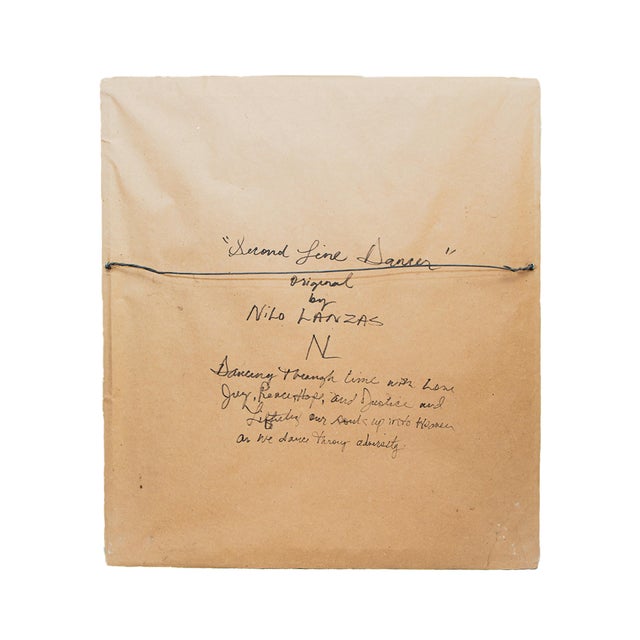 "Second Line Dancer"
original
by
NiLO LANZAS
NL
Dancing through time with Love
Joy, Peace, Hope, and Justice and
our souls up into Heaven
as we dance throug adversity